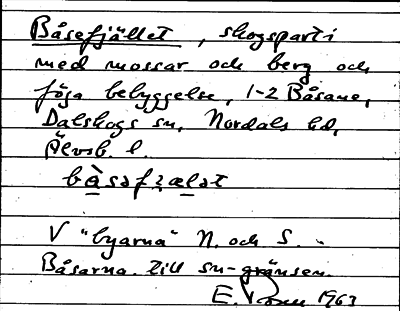 Båsefjället, skogsparti
med mossar och berg och
föga bebyggelse, 1-2 Båsane,
Dalskogs sn, Nordals hd,
Älvsb. l.
V "byarna" N. och S.
Båsarna till sn-gränsen.
E. 1963